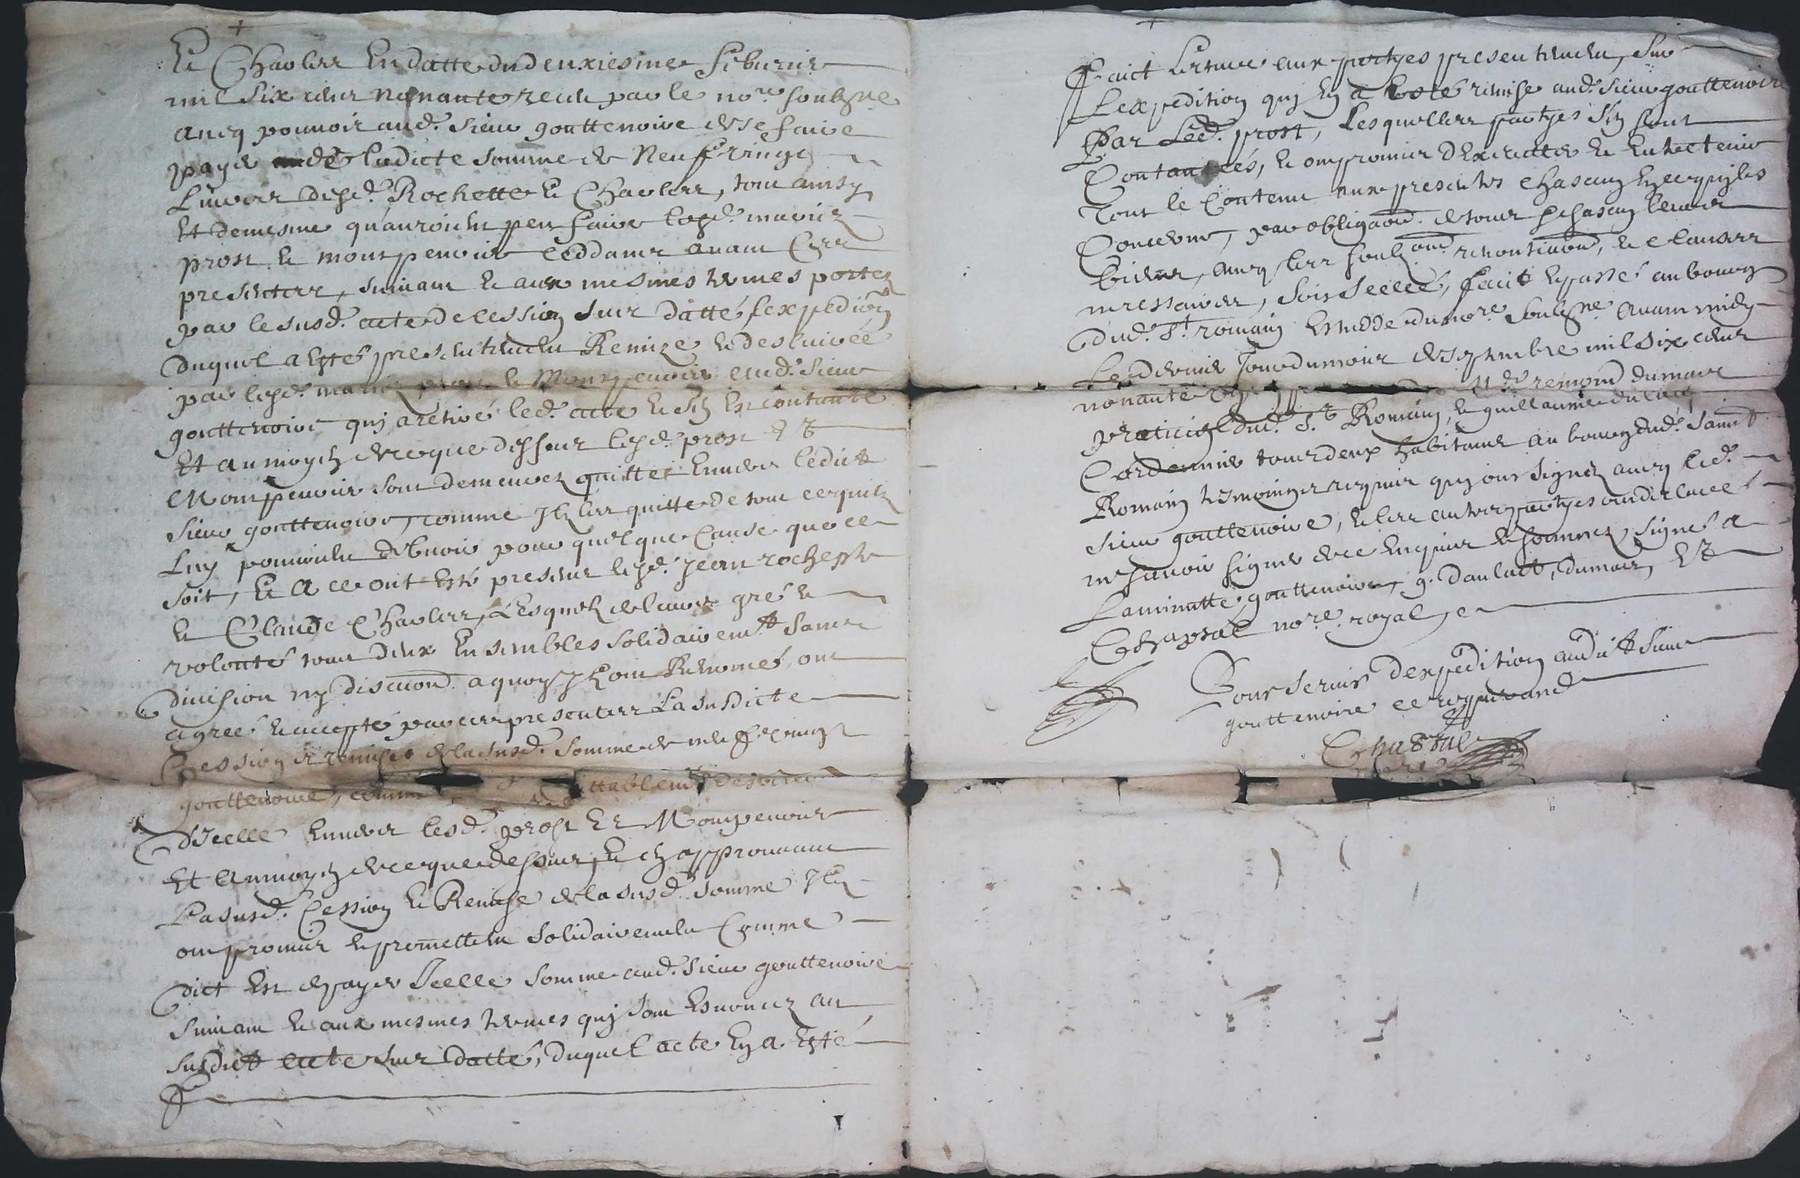 Et Chaoleer En datte du deuxiesme feburier
mil six cens nonante receu par le no.re soubsne
avecq pouvoir aud. sieur gouttenoire de se faire
payer de ladicte somme de Neuf vingt
Livres desd. Rochette Et Chaoleer, tout ainsy
Et de mesme qu'auroient peu faire lesd. mariez
prost et montpenoir ceddants avant Ces
presentes, suivant et aux mesmes termes portez
par le susd. acte de cession sur datté l'expedition
duquel a Esté presentement Remize et deslivrée
par lesd. mariez prost et Montpenoir aud. sieur
gouttenoire quj a retiré led. acte Et s'En Est contanté
Et au moyen de ce que dessus lesd. prost Et
Mompenoir sont demeurez quittes Envers ledict
sieur gouttenoire, comme Il les quitte de tout ce qu'ilz
Luy pouvoient debvoir pour quelque Cause que ce
soit, Et A ce ont Esté presens lesd. Jean rochette
Et Claude Chaoleer, Lesquelz de leurs gré et
volonté tous deux Ensembles solidairem.t sans
division ny discution a quoy Ilz ont Renoncé, ont
agreé et accepté par ces presentes La susdicte
Cession et remise de la susd. somme de neuf vingt
gouttenoire, comme
d'Icelle Envers lesd. prost Et Mompenoir
Et au moyen de ce que dessus, Et En approuvant
La susd. Cession Et Remise de la susd. somme Ilz
ont promis et promettent solidairement Comme
dict Est de payer Icelle somme aud. sieur gouttenoire
suivant et aux mesmes termes quj sont Enoncez au
susdict acte sur datté, duquel acte En a Esté
faict Lecture aux partyes presentement, sur
L'expedition quj En a Esté remise aud. sieur gouttenoire
Par Led. prost, Lesquelles partyes s'En sont
Contantées, Et ont promis d'Executer Et Entretenir
Tout le Contenu aux presentes chascun En ce qui les
Concerne, par obligaon. de tous Et chascun leurs
biens, avecq les soubz.ons renontiaons, Et Clauses
necessaires, soubs scellé, faict Et passé au bourg
dud. St. romain Estude du no.re soubsne avant midy
Le dernier Jour du mois de septembre mil six cens
nonante
praticien dud. St. Romain, Et guillaume
Cordonnier tous deux habitants au bourg dud. Sainct
Romain tesmoings requis quj ont signez avecq led.
sieur gouttenoire, Et les autres partyes ont declaré
ne scavoir signer de ce Enquis Et sommez, signé a
La minutte, gouttenoire, g. daulait, dumais, Et
Chapsal no.re royal
Pour servir d'expedition audict sieur
gouttenoire ce requerand
Chapsal